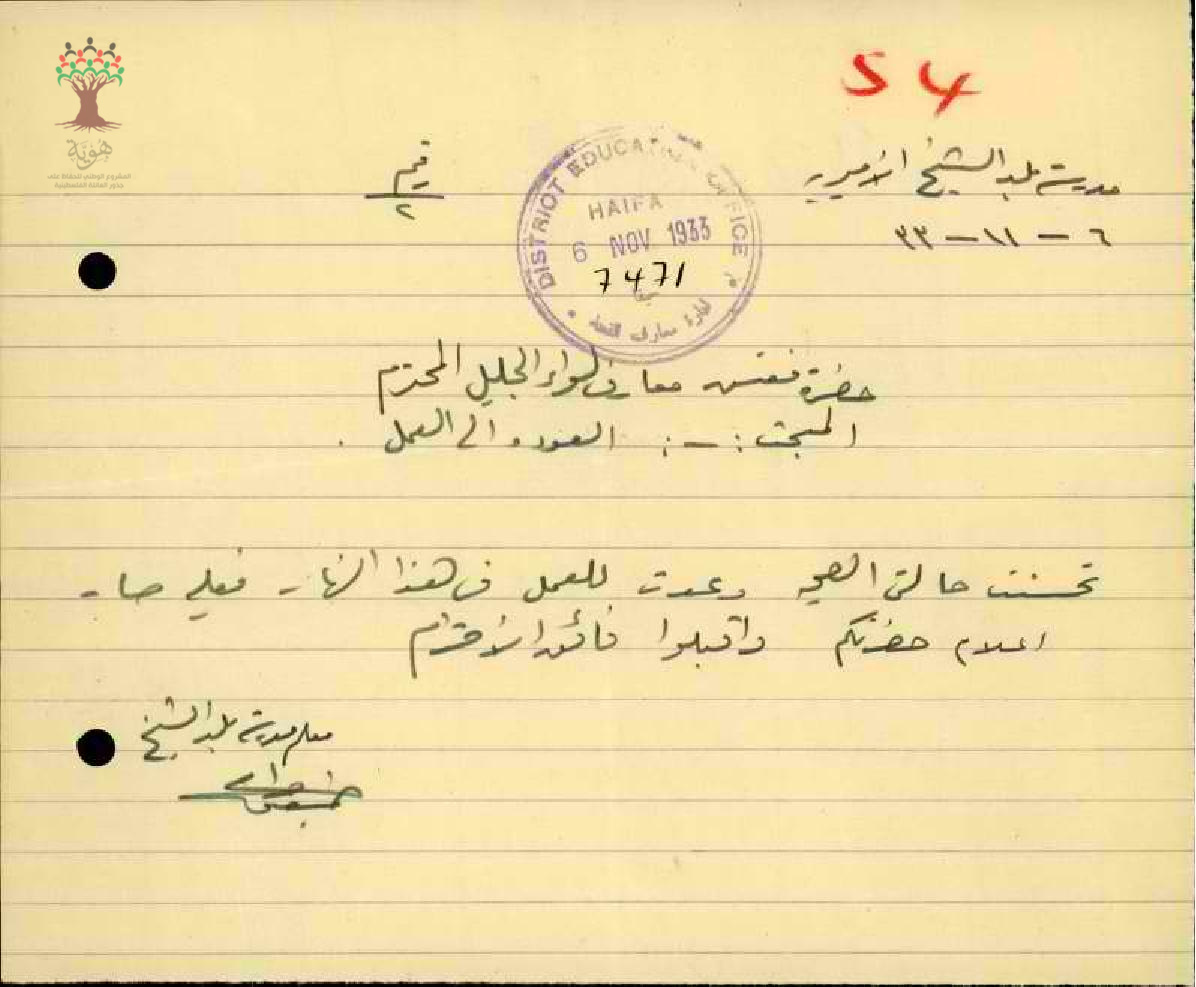 54
مدرسة بلد الشيخ الاميرية
٦ - ١١ - ٣٣
٢
DISTRICT EDUCATION OFFICE
HAIFA
6 NOV 1933
7471
حضرة مفتش معارف لواء الجليل المحترم
المبحث :-: العوده الى العمل .
تحسنت حالتي الصحيه وعدت للعمل في هذا النهار فعليه صار
اعلام حضرتكم واقبلوا فائق الاحترام
معلم مدرسة بلد الشيخ
هوية
المشروع الوطني للحفاظ على
جذور العائلة الفلسطينية